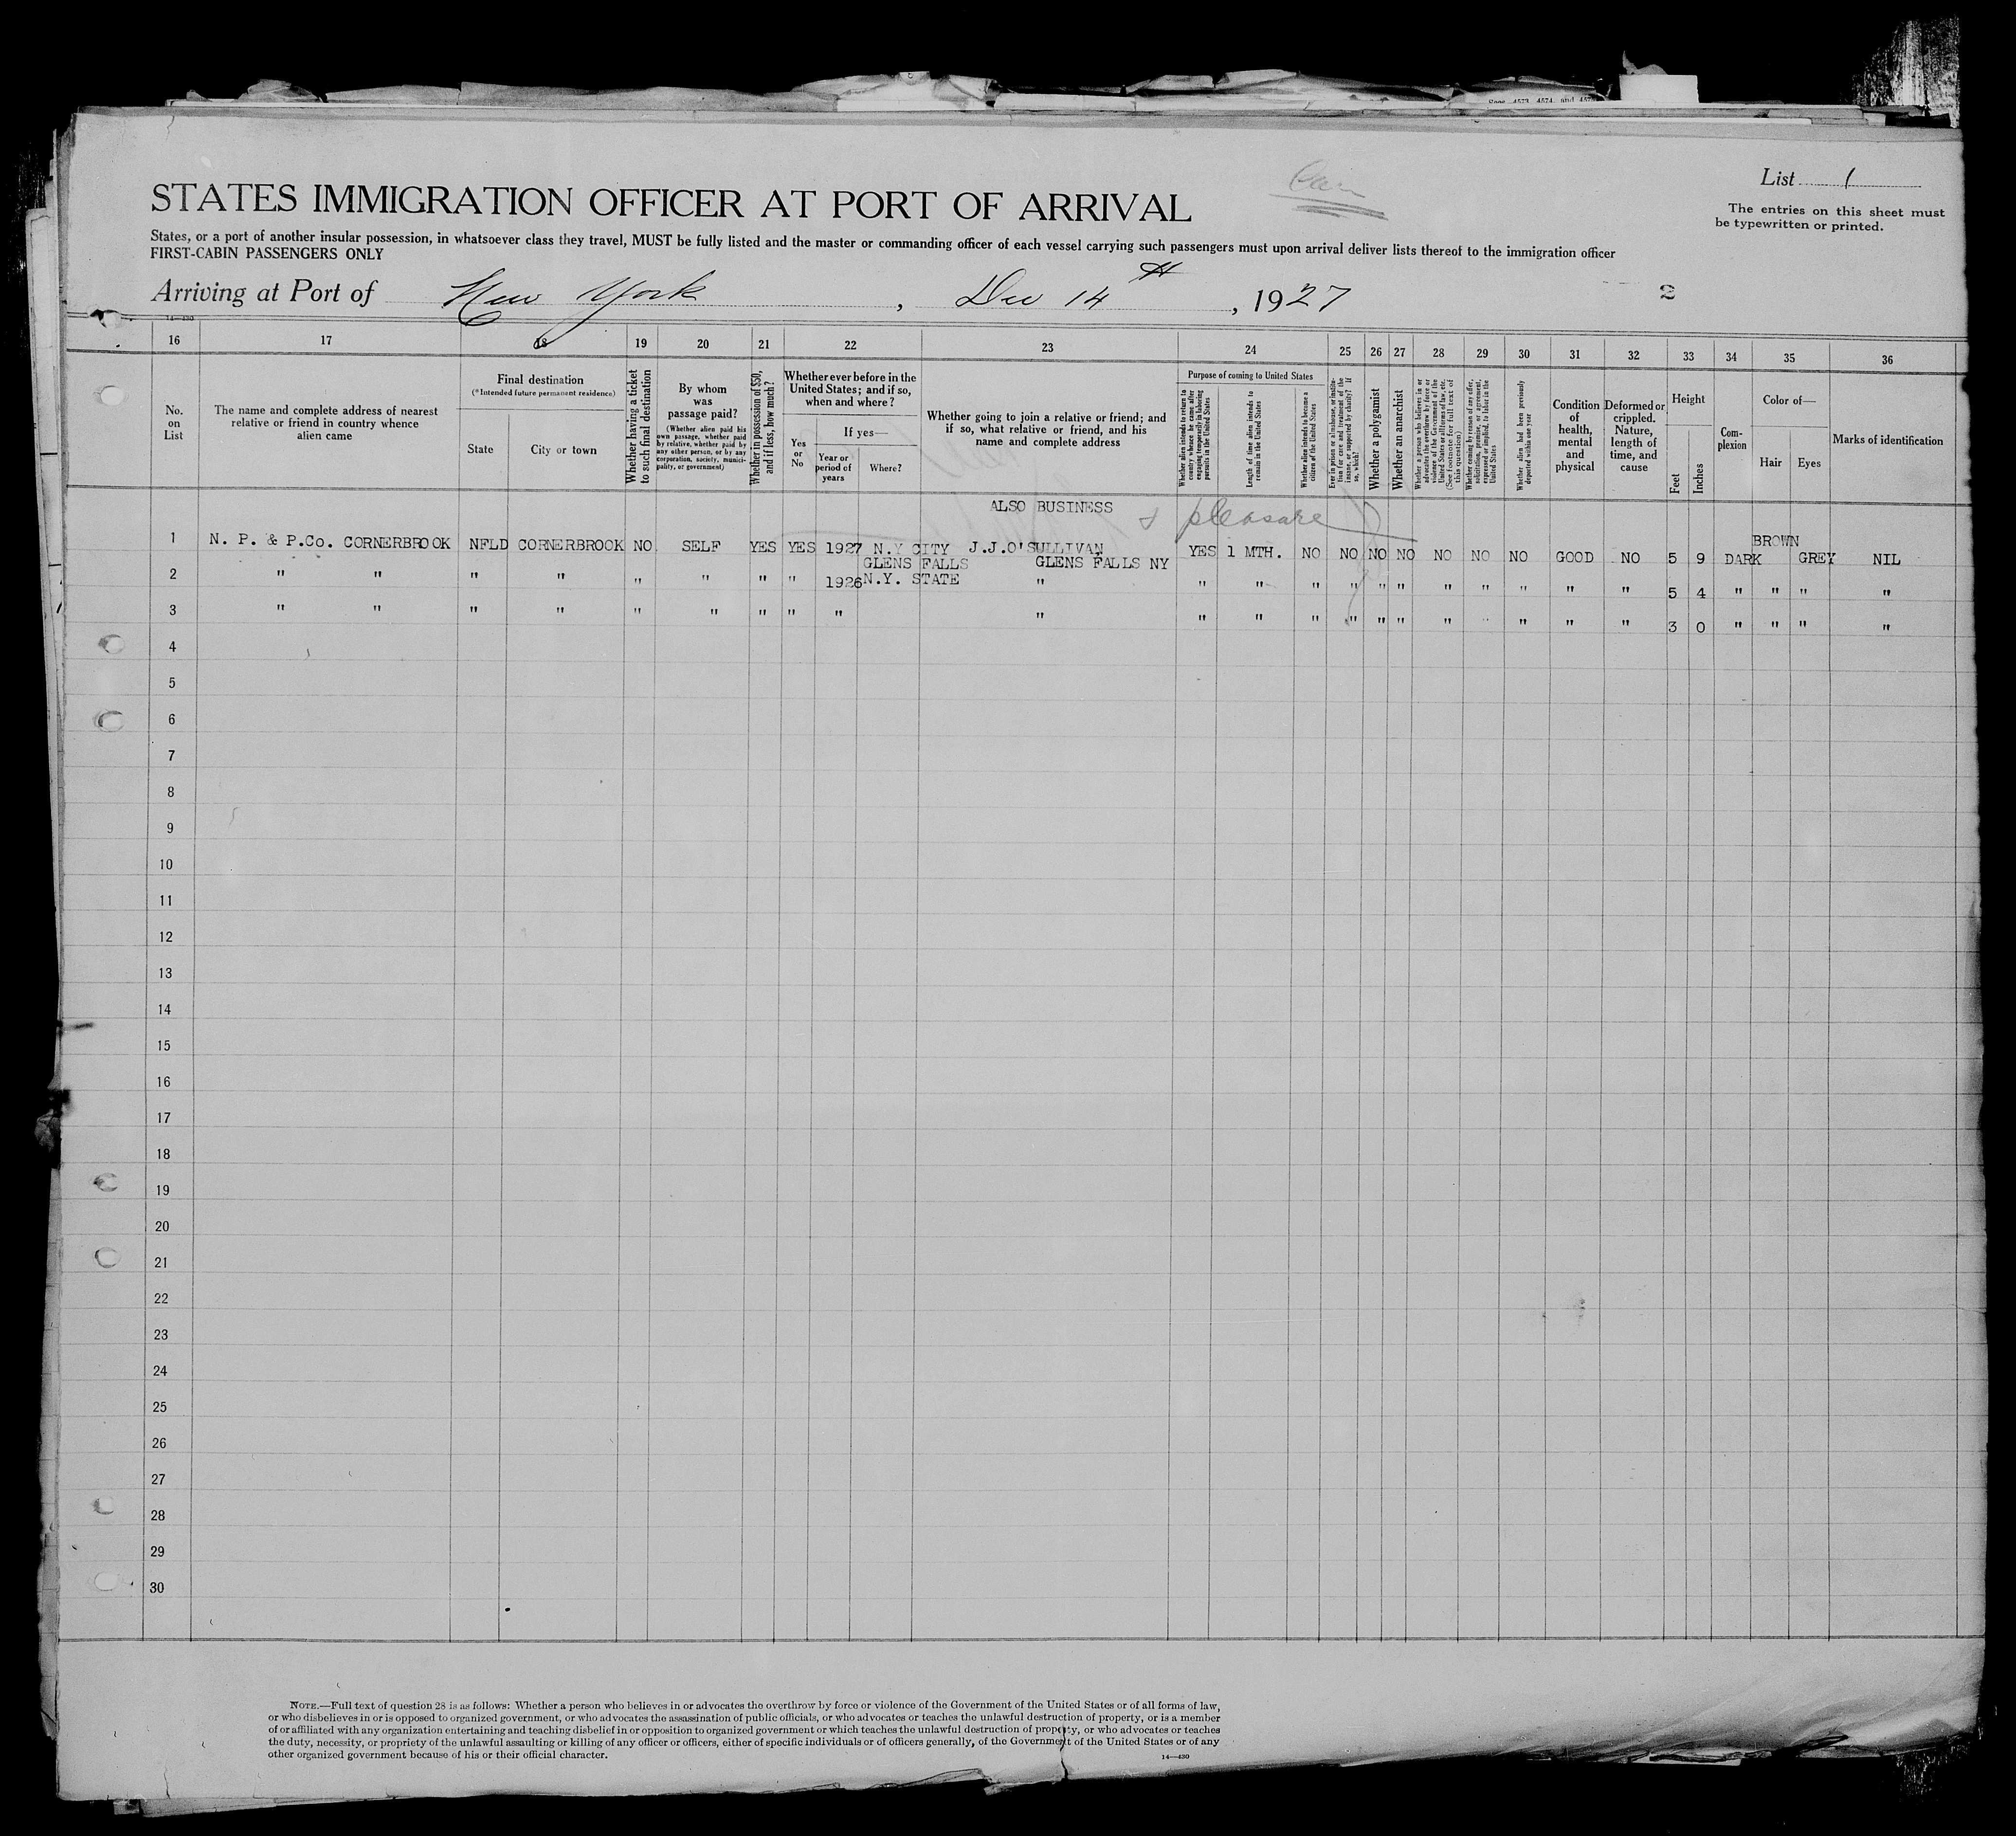 Secs. 4573, 4574, and 4575
List 1
STATES IMMIGRATION OFFICER AT PORT OF ARRIVAL
The entries on this sheet must
be typewritten or printed.
States, or a port of another insular possession, in whatsoever class they travel, MUST be fully listed and the master or commanding officer of each vessel carrying such passengers must upon arrival deliver lists thereof to the immigration officer
FIRST-CABIN PASSENGERS ONLY
Arriving at Port of New York, Dec 14th, 1927
2
14—430
16 17 18 19 20 21 22 23 24 25 26 27 28 29 30 31 32 33 34 35 36
No. on List
The name and complete address of nearest relative or friend in country whence alien came
Final destination
(*Intended future permanent residence)
State
City or town
Whether having a ticket to such final destination
By whom was passage paid?
(Whether alien paid his own passage, whether paid by relative, whether paid by any other person, or by any corporation, society, municipality, or government)
Whether in possession of $50, and if less, how much?
Whether ever before in the United States; and if so, when and where?
Yes or No
If yes—
Year or period of years
Where?
Whether going to join a relative or friend; and if so, what relative or friend, and his name and complete address
Purpose of coming to United States
Whether alien intends to return to country whence he came after engaging temporarily in laboring pursuits in the United States
Length of time alien intends to remain in the United States
Whether alien intends to become a citizen of the United States
Ever in prison or almshouse, or institution for care and treatment of the insane, or supported by charity? If so, which?
Whether a polygamist
Whether an anarchist
Whether a person who believes in or advocates the overthrow by force or violence of the Government of the United States or all forms of law, etc. (See footnote for full text of this question)
Whether coming by reason of any offer, solicitation, promise, or agreement, expressed or implied, to labor in the United States
Whether alien had been previously deported within one year
Condition of health, mental and physical
Deformed or crippled. Nature, length of time, and cause
Height
Feet
Inches
Com-plexion
Color of—
Hair
Eyes
Marks of identification
ALSO BUSINESS & pleasure
1 N. P. & P.Co. CORNERBROOK NFLD CORNERBROOK NO SELF YES YES 1927 N.Y CITY J.J.O'SULLIVAN YES 1 MTH. NO NO NO NO NO NO NO GOOD NO 5 9 DARK BROWN GREY NIL
GLENS FALLS GLENS FALLS NY
2 " " " " " " " " 1926 N.Y. STATE " " " " " " " " " " " " 5 4 " " " "
3 " " " " " " " " " " " " " " " " " " " " " 3 0 " " " "
4
5
6
7
8
9
10
11
12
13
14
15
16
17
18
19
20
21
22
23
24
25
26
27
28
29
30
NOTE.—Full text of question 28 is as follows: Whether a person who believes in or advocates the overthrow by force or violence of the Government of the United States or of all forms of law,
or who disbelieves in or is opposed to organized government, or who advocates the assassination of public officials, or who advocates or teaches the unlawful destruction of property, or is a member
of or affiliated with any organization entertaining and teaching disbelief in or opposition to organized government or which teaches the unlawful destruction of property, or who advocates or teaches
the duty, necessity, or propriety of the unlawful assaulting or killing of any officer or officers, either of specific individuals or of officers generally, of the Government of the United States or of any
other organized government because of his or their official character.
14—430